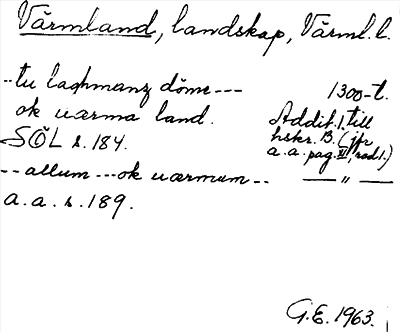 Värmland, landskap, Värml. l.
-- tu laghmanz döme --- 1300-t.
ok uærma land. Addit. 1. till
SÖL s. 184. hskr. B. (jfr
a.a. pag. II, rad 1.)
-- allum --- ok uærmum -- — " —
a. a. s. 189.
G.E. 1963.